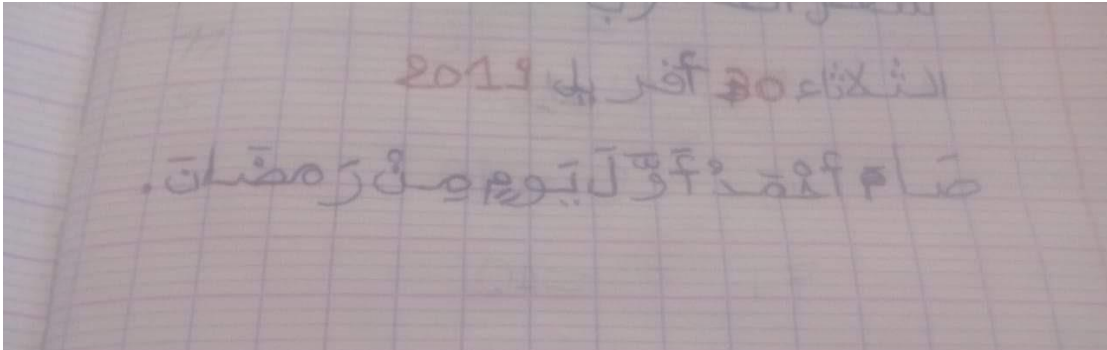 الثلاثاء 30 أفريل 2019
صام أحمد أَوَّلَ يَوْمٍ مِنْ رَمَضَانَ.